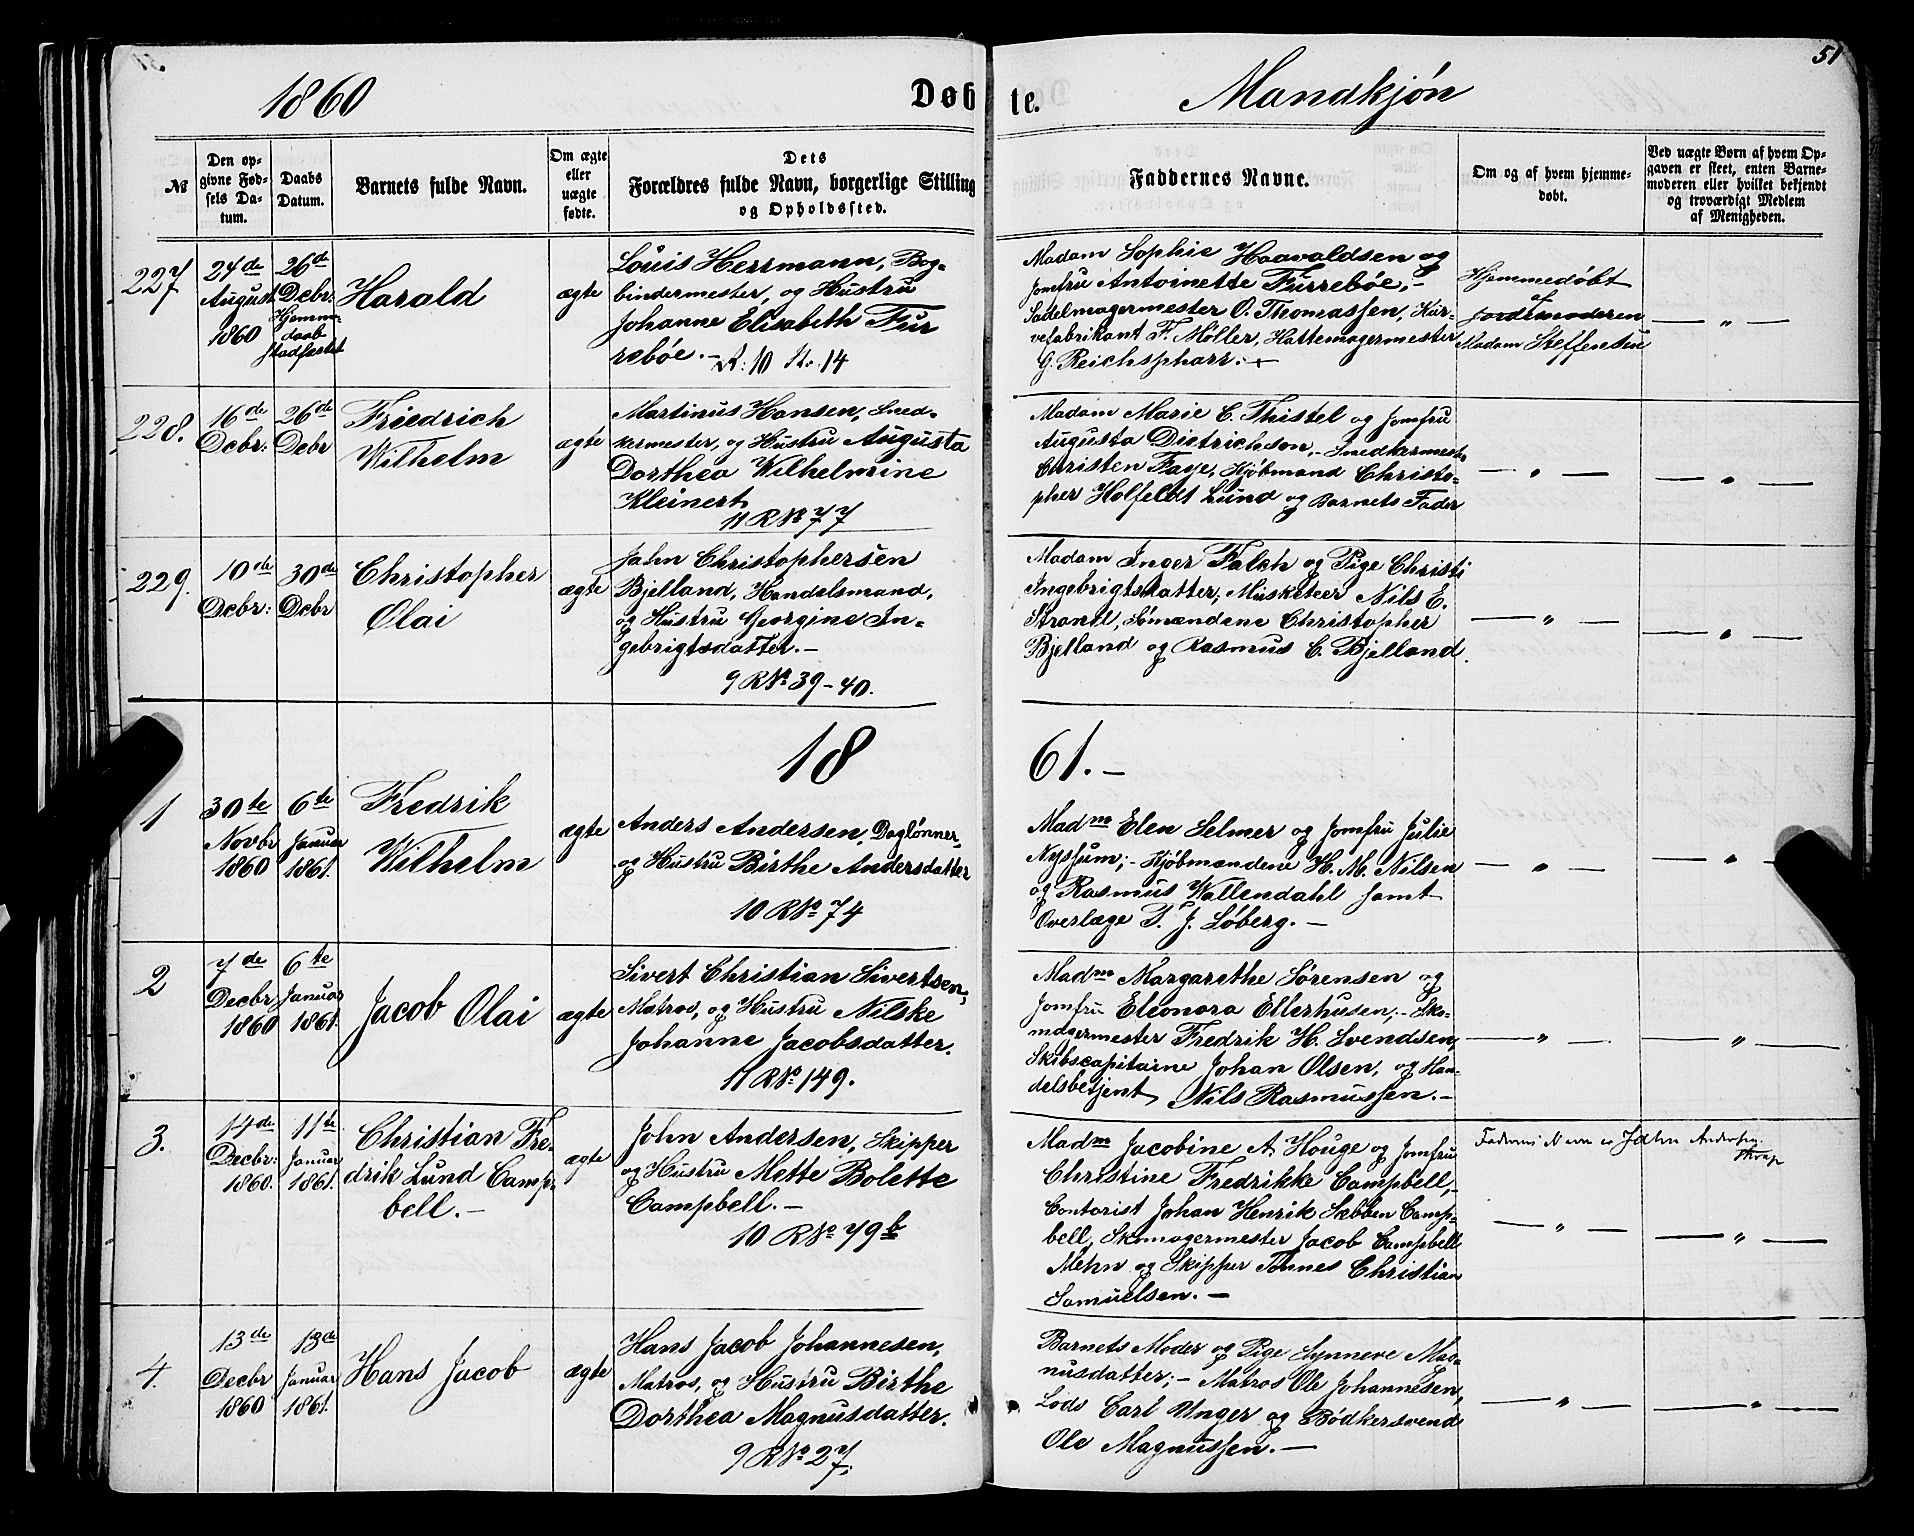 51
1860 Døbte. Mandkjøn
№
Den op-
givne Fød-
sels Da-
tum.
Daabs
Datum.
Barnets fulde Navn.
Om ægte
eller
uægte
fødte.
Dets
Forældres fulde Navn, borgerlige Stilling
og Opholdssted.
Faddernes Navne.
Om og af hvem hjemme-
døbt.
Ved uægte Børn af hvem Op-
gaven er skeet, enten Barne-
moderen eller hvilket bekjendt
og troværdigt Medlem
af Menigheden.
227
24de
August
1860
26de
Decbr:
Hjemme-
daab
stadfæstet
Harald
ægte
Louis Herrmann, Bog-
bindermester, og Hustru
Johanne Elisabeth Fur
rebøe.-
R: 10 No. 14
Madam Sophie Haavaldsen og
Jomfru Antoinette Furrebøe,-
Sadelmagermester O. Thomassen, Kur-
vefabrikant F. Møller, Hattemagermester
G. Reichspharr.-
Hjemmedøbt
af
Jordemoderen
Madam Steffensen
— " —
228.
16de
Decbr:
26de
Decbr
Friedrich
Wilhelm
ægte
Martinus Hansen, Sned-
kermester, og Hustru Augusta
Dorthea Wilhelmine
Kleinert
11 R № 77
Madam Marie C. Thistel og Jomfru
Augusta Dietrichson,- Snedkermest.
Christen Faye, Kjøbmand Christo-
pher Holfeldt Lund og Barnets Fader
— " —
— " —
229.
10de
Decbr:
30de
Decbr
Christopher
Olai
ægte
Jahn Christophersen
Bjelland, Handelsmand,
og Hustru Georgine In-
gebrigtsdatter.-
9 R № 39-40.
Madam Inger Falch og Pige Christi
Ingebrigtsdatter, Musketeer Nils E.
Strand, Sømændene Christopher
Bjelland og Rasmus C. Bjelland.
— " —
— " —
18 61.-
1
30te
Novbr
1860
6te
Januar
1861.
Fredrik
Wilhelm
ægte
Anders Andersen, Daglønner,
og Hustru Birthe Andersdatter
10 R № 74
Madm Elen Selmer og Jomfru Julie
Nyssum;- Kjøbmændene H. M. Nilsen
og Rasmus Wallendahl samt
Overlæge T. J. Løberg.-
— " —
— " —
2
7de
Decbr
1860
6te
Januar
1861.
Jacob Olai
ægte
Sivert Christian Sivertsen,
Matros, og Hustru Nilske
Johanne Jacobsdatter.
11 R № 149.
Madm Margarethe Sørensen og
Jomfru Eleonora Ellerhusen;- Sko-
magermester Fredrik H. Svendsen,
Skibscapitaine Johan Olsen, og Han-
delsbetjent Nils Rasmussen.-
— " —
— " —
3.
14de
Decbr:
1860.
11te
Januar
1861.
Christian Fre-
drik Lund Camp-
bell.-
ægte
John Andersen, Skipper
og Hustru Mette Bolette
Campbell.-
10 R № 79b
Madm Jacobine A Houge og Jomfru
Christine Fredrikke Campbell,-
Contorist Johan Henrik Sebben Camp-
bell, Skomagermester Jacob Campbell
Mehn og Skipper Tønnes Christian
Samuelsen.-
Faderens Navn er Andersen
— " —
— " —
4.
13de
Decbr
1860
13de
Januar
1861.
Hans Jacob
ægte
Hans Jacob Johannesen,
Matros, og Hustru Birthe
Dorthea Magnusdatter.
9 R № 27.
Barnets Moder og Pige Synneve Mag-
nusdatter;- Matros Ole Johannesen,
Lods Carl Unger og Bødkersvend
Ole Magnussen.-
— " —
— " —